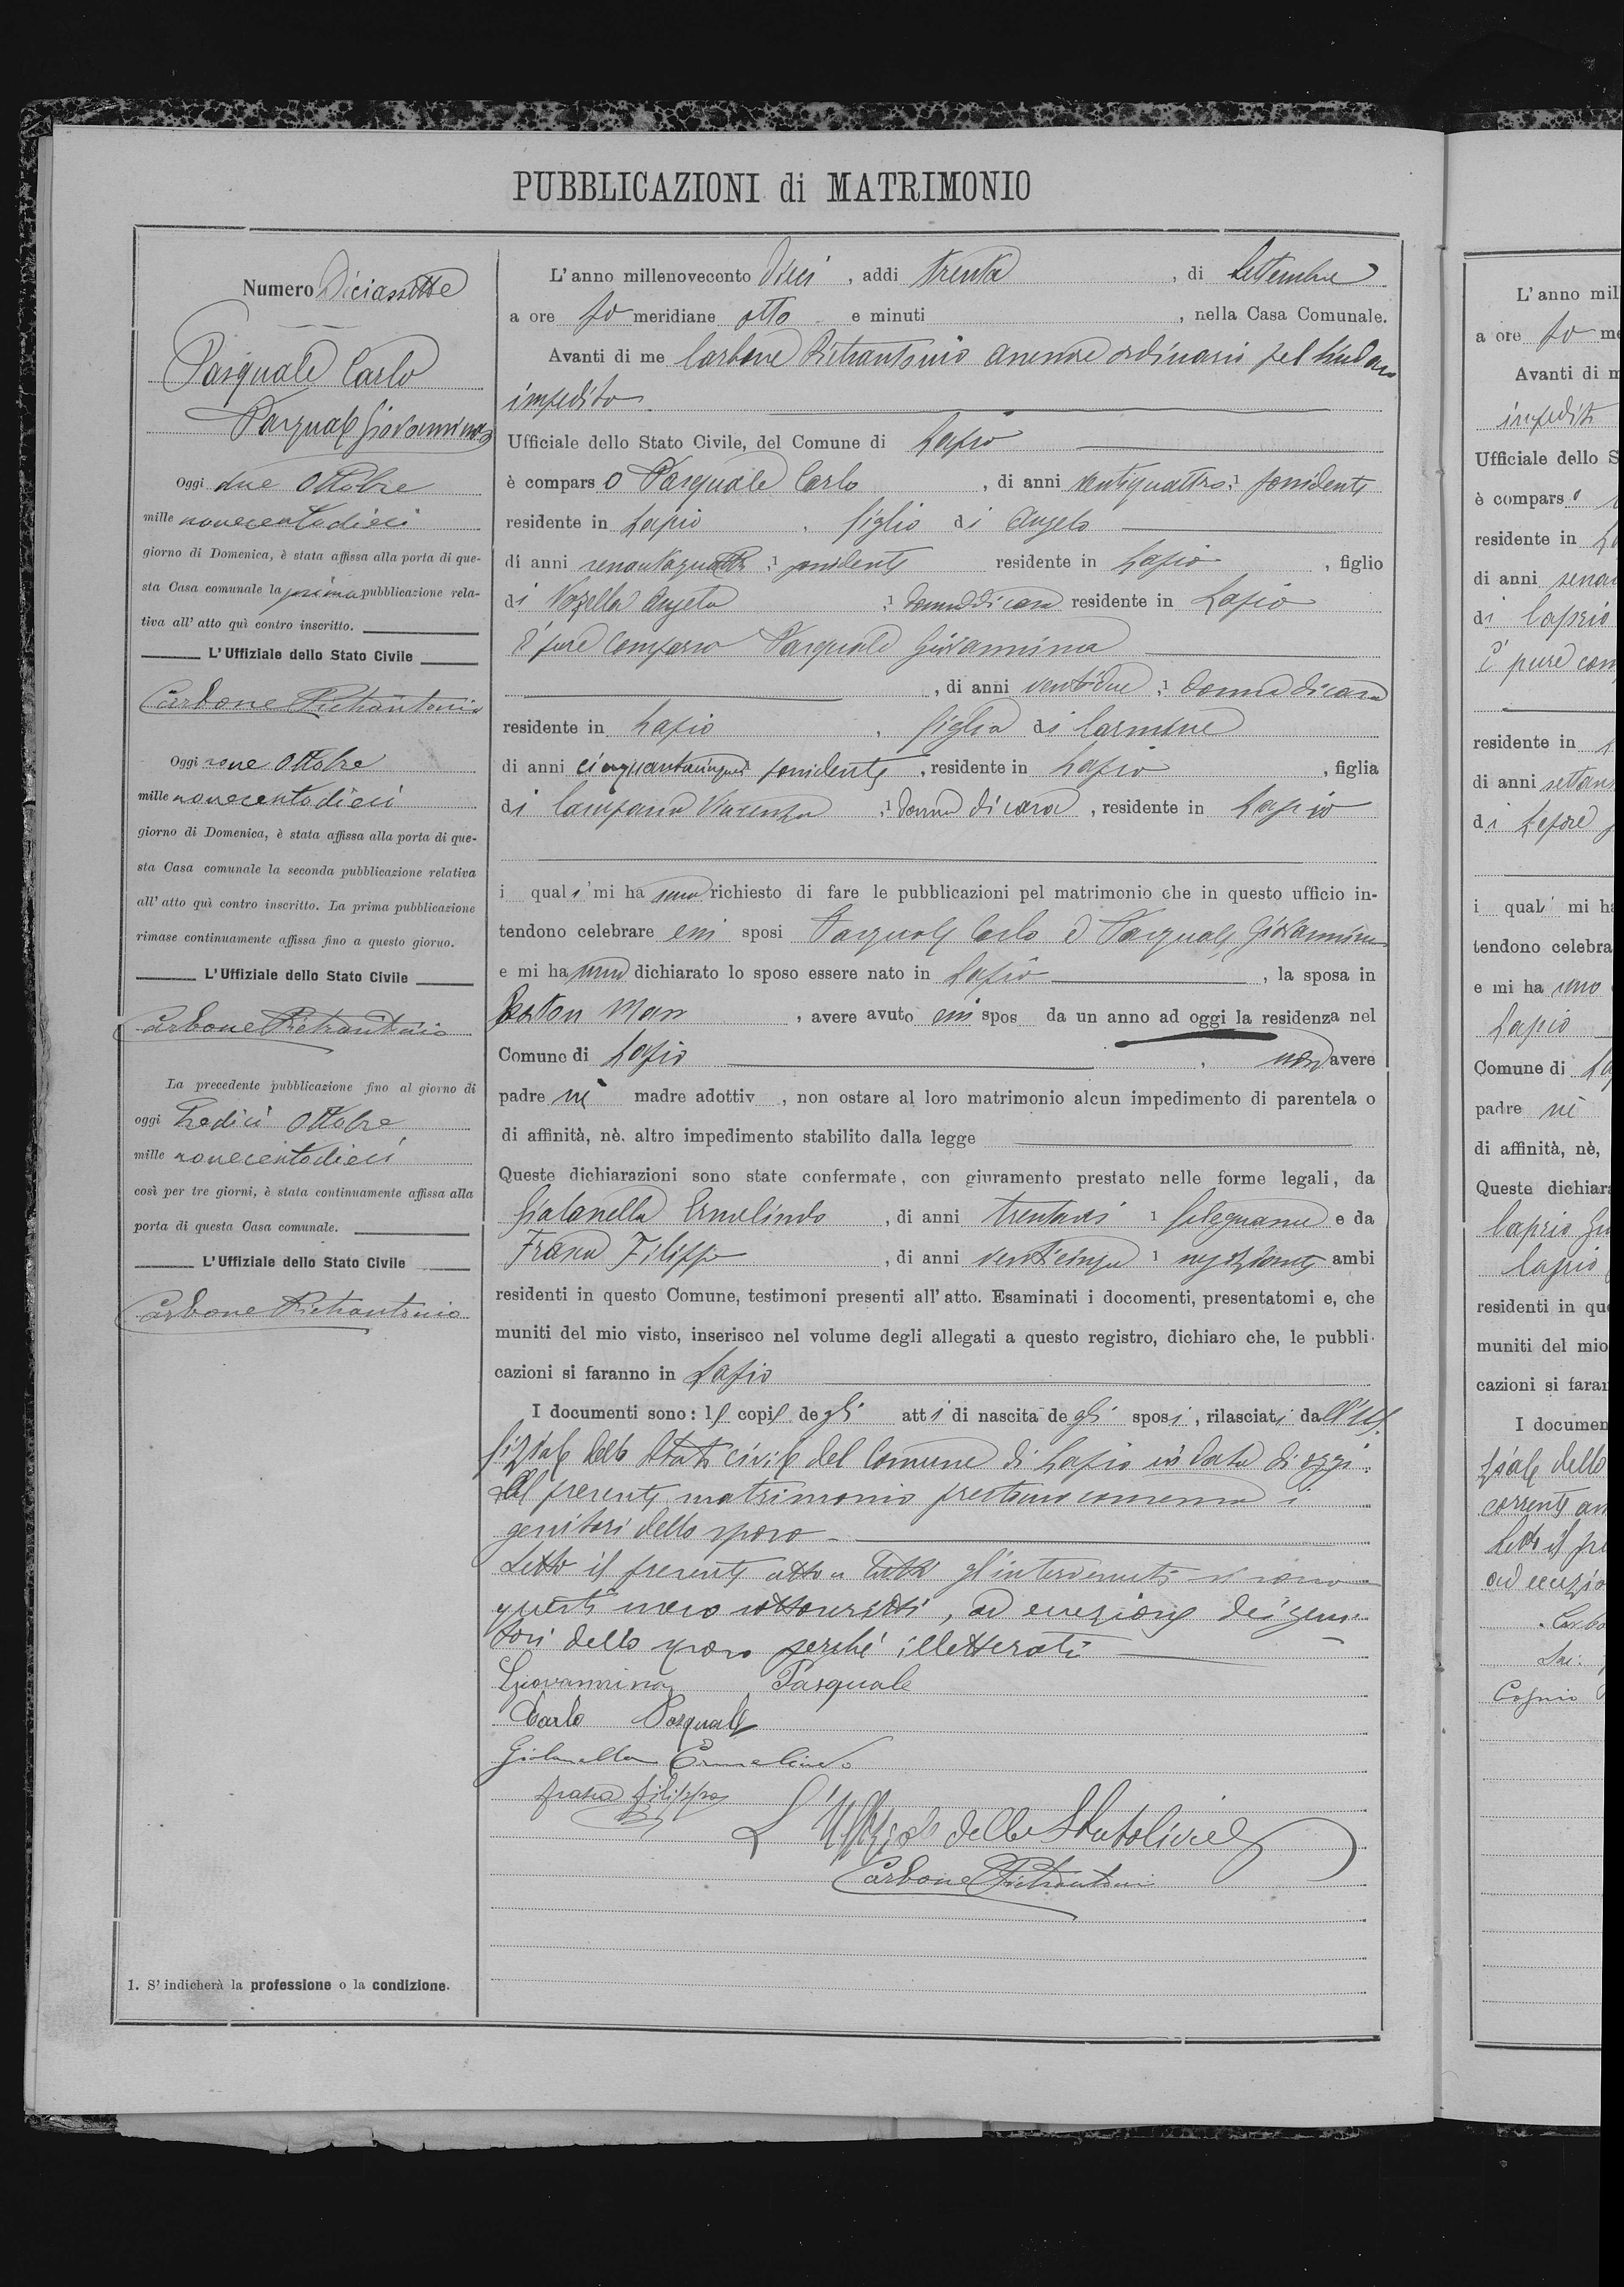 PUBBLICAZIONI di MATRIMONIO
Numero Diciassette
Pasquale Carlo
Pasquale Giovannina
Oggi due Ottobre
mille novecentodieci
giorno di Domenica, è stata affissa alla porta di que-
sta Casa comunale la prima pubblicazione rela-
tiva all' atto quì contro inscritto.
L' Uffiziale dello Stato Civile
Carbone Pietrantonio
Oggi nove Ottobre
mille novecentodieci
giorno di Domenica, è stata affissa alla porta di que-
sta Casa comunale la seconda pubblicazione relativa
all' atto quì contro inscritto. La prima pubblicazione
rimase continuamente affissa fino a questo giorno.
L' Uffiziale dello Stato Civile
Carbone Pietrantonio
La precedente pubblicazione fino al giorno di
oggi Tredici Ottobre
mille novecentodieci
così per tre giorni, è stata continuamente affissa alla
porta di questa Casa comunale.
L' Uffiziale dello Stato Civile
Carbone Pietrantonio
1. S' indicherà la professione o la condizione.
L' anno millenovecento dieci , addi trenta , di Settembre
a ore po meridiane otto e minuti , nella Casa Comunale.
Avanti di me Carbone Pietrantonio assessore ordinario pel Sindaco
impedito
Ufficiale dello Stato Civile, del Comune di Lapio
è compars o Pasquale Carlo , di anni ventiquattro 1 possidente
residente in Lapio , figlio di Angelo
di anni sessantaquattro 1 possidente residente in Lapio , figlio
di Vozella Angela 1 donna di casa residente in Lapio
È pure comparsa Pasquale Giovannina
, di anni ventidue 1 donna di casa
residente in Lapio , figlia di Carmine
di anni cinquantacinque possidente , residente in Lapio , figlia
di Campana Vincenza 1 donna di casa , residente in Lapio
i quali mi hanno richiesto di fare le pubblicazioni pel matrimonio che in questo ufficio in-
tendono celebrare essi sposi Pasquale Carlo e Pasquale Giovannina
e mi hanno dichiarato lo sposo essere nato in Lapio , la sposa in
Boston Mass , avere avuto essi spos da un anno ad oggi la residenza nel
Comune di Lapio , non avere
padre nè madre adottiv , non ostare al loro matrimonio alcun impedimento di parentela o
di affinità, nè. altro impedimento stabilito dalla legge
Queste dichiarazioni sono state confermate, con giuramento prestato nelle forme legali, da
Gialanella Ermelindo , di anni trentasei 1 falegname e da
Frasca Filippo , di anni venticinque 1 negoziante ambi
residenti in questo Comune, testimoni presenti all' atto. Esaminati i documenti, presentatomi e, che
muniti del mio visto, inserisco nel volume degli allegati a questo registro, dichiaro che, le pubbli-
cazioni si faranno in Lapio
I documenti sono: le copie degli atti di nascita degli sposi, rilasciati dall'Uf
fiziale dello Stato civile del Comune di Lapio in data di oggi.
Al presente matrimonio prestano consenso i
genitori dello sposo
Letto il presente atto a tutti gl'intervenuti si sono
questi meco sottoscritti, ad eccezione dei geni-
tori dello sposo perchè illetterati
Giovannina Pasquale
Carlo Pasquale
Gialanella Ermelindo
Frasca Filippo
L'Uffiziale dello Stato Civile
Carbone Pietrantonio
L' anno mil
a ore po me
Avanti di m
impedito
Ufficiale dello S
è compars o
residente in
di anni
di Caprio
È pure com
residente in
di anni
di Lepore
i qual mi ha
tendono celebra
e mi ha nno
Lapio
Comune di
padre nè
di affinità, nè,
Queste dichiara
Caprio
residenti in que
muniti del mio
cazioni si faran
I documen
ziale dello
corrente
Letto il pre
ad eccezio